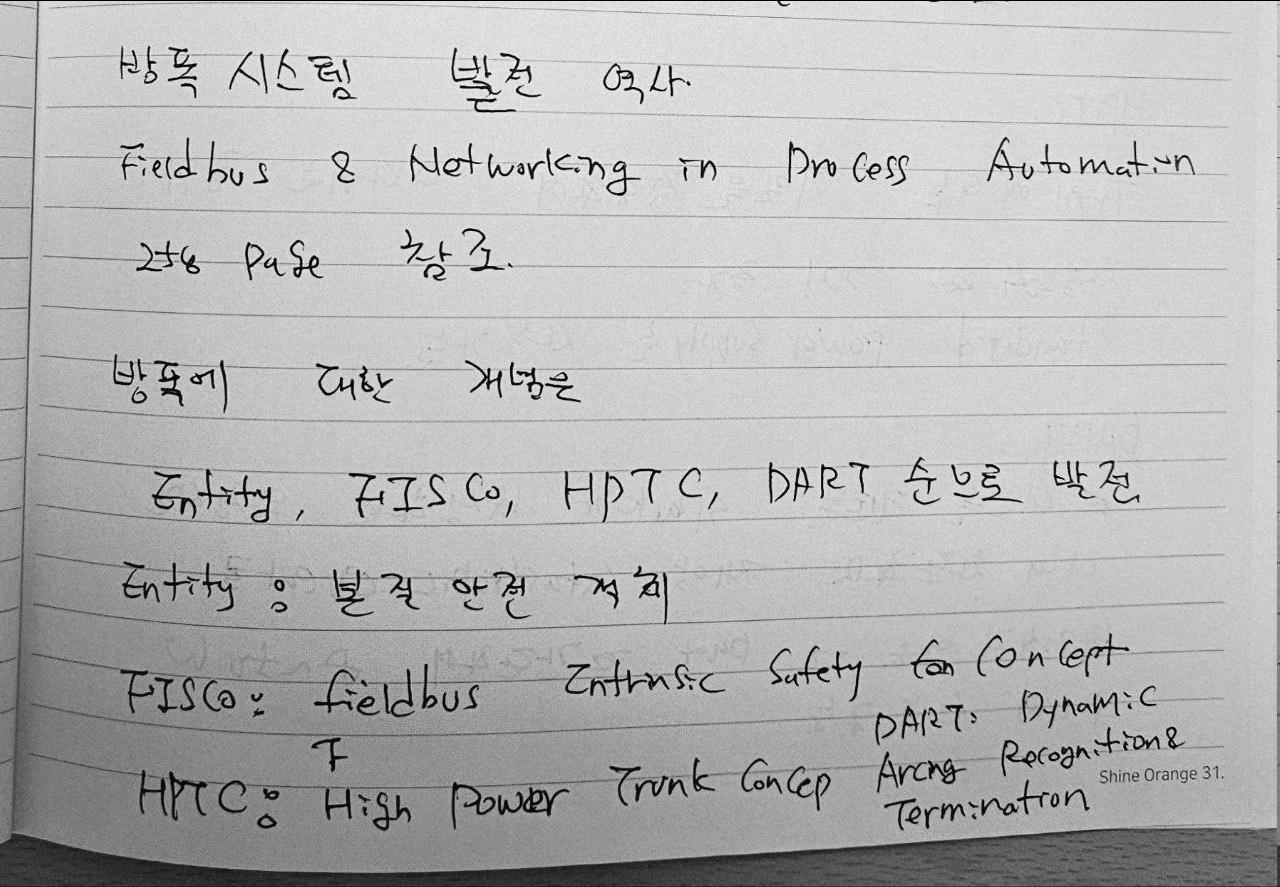 방폭 시스템 발전 역사.
Fieldbus & Networking in Process Automation
258 Page 참조.
방폭에 대한 개념은
Entity, FISCO, HPTC, DART 순으로 발전
Entity : 본질 안전 격리
FISCO: fieldbus Intrinsic Safety Con Concept
F
HPTC: High Power Trunk Concep
DART: Dynamic
Arcing Recognition &
Termination
Shine Orange 31.